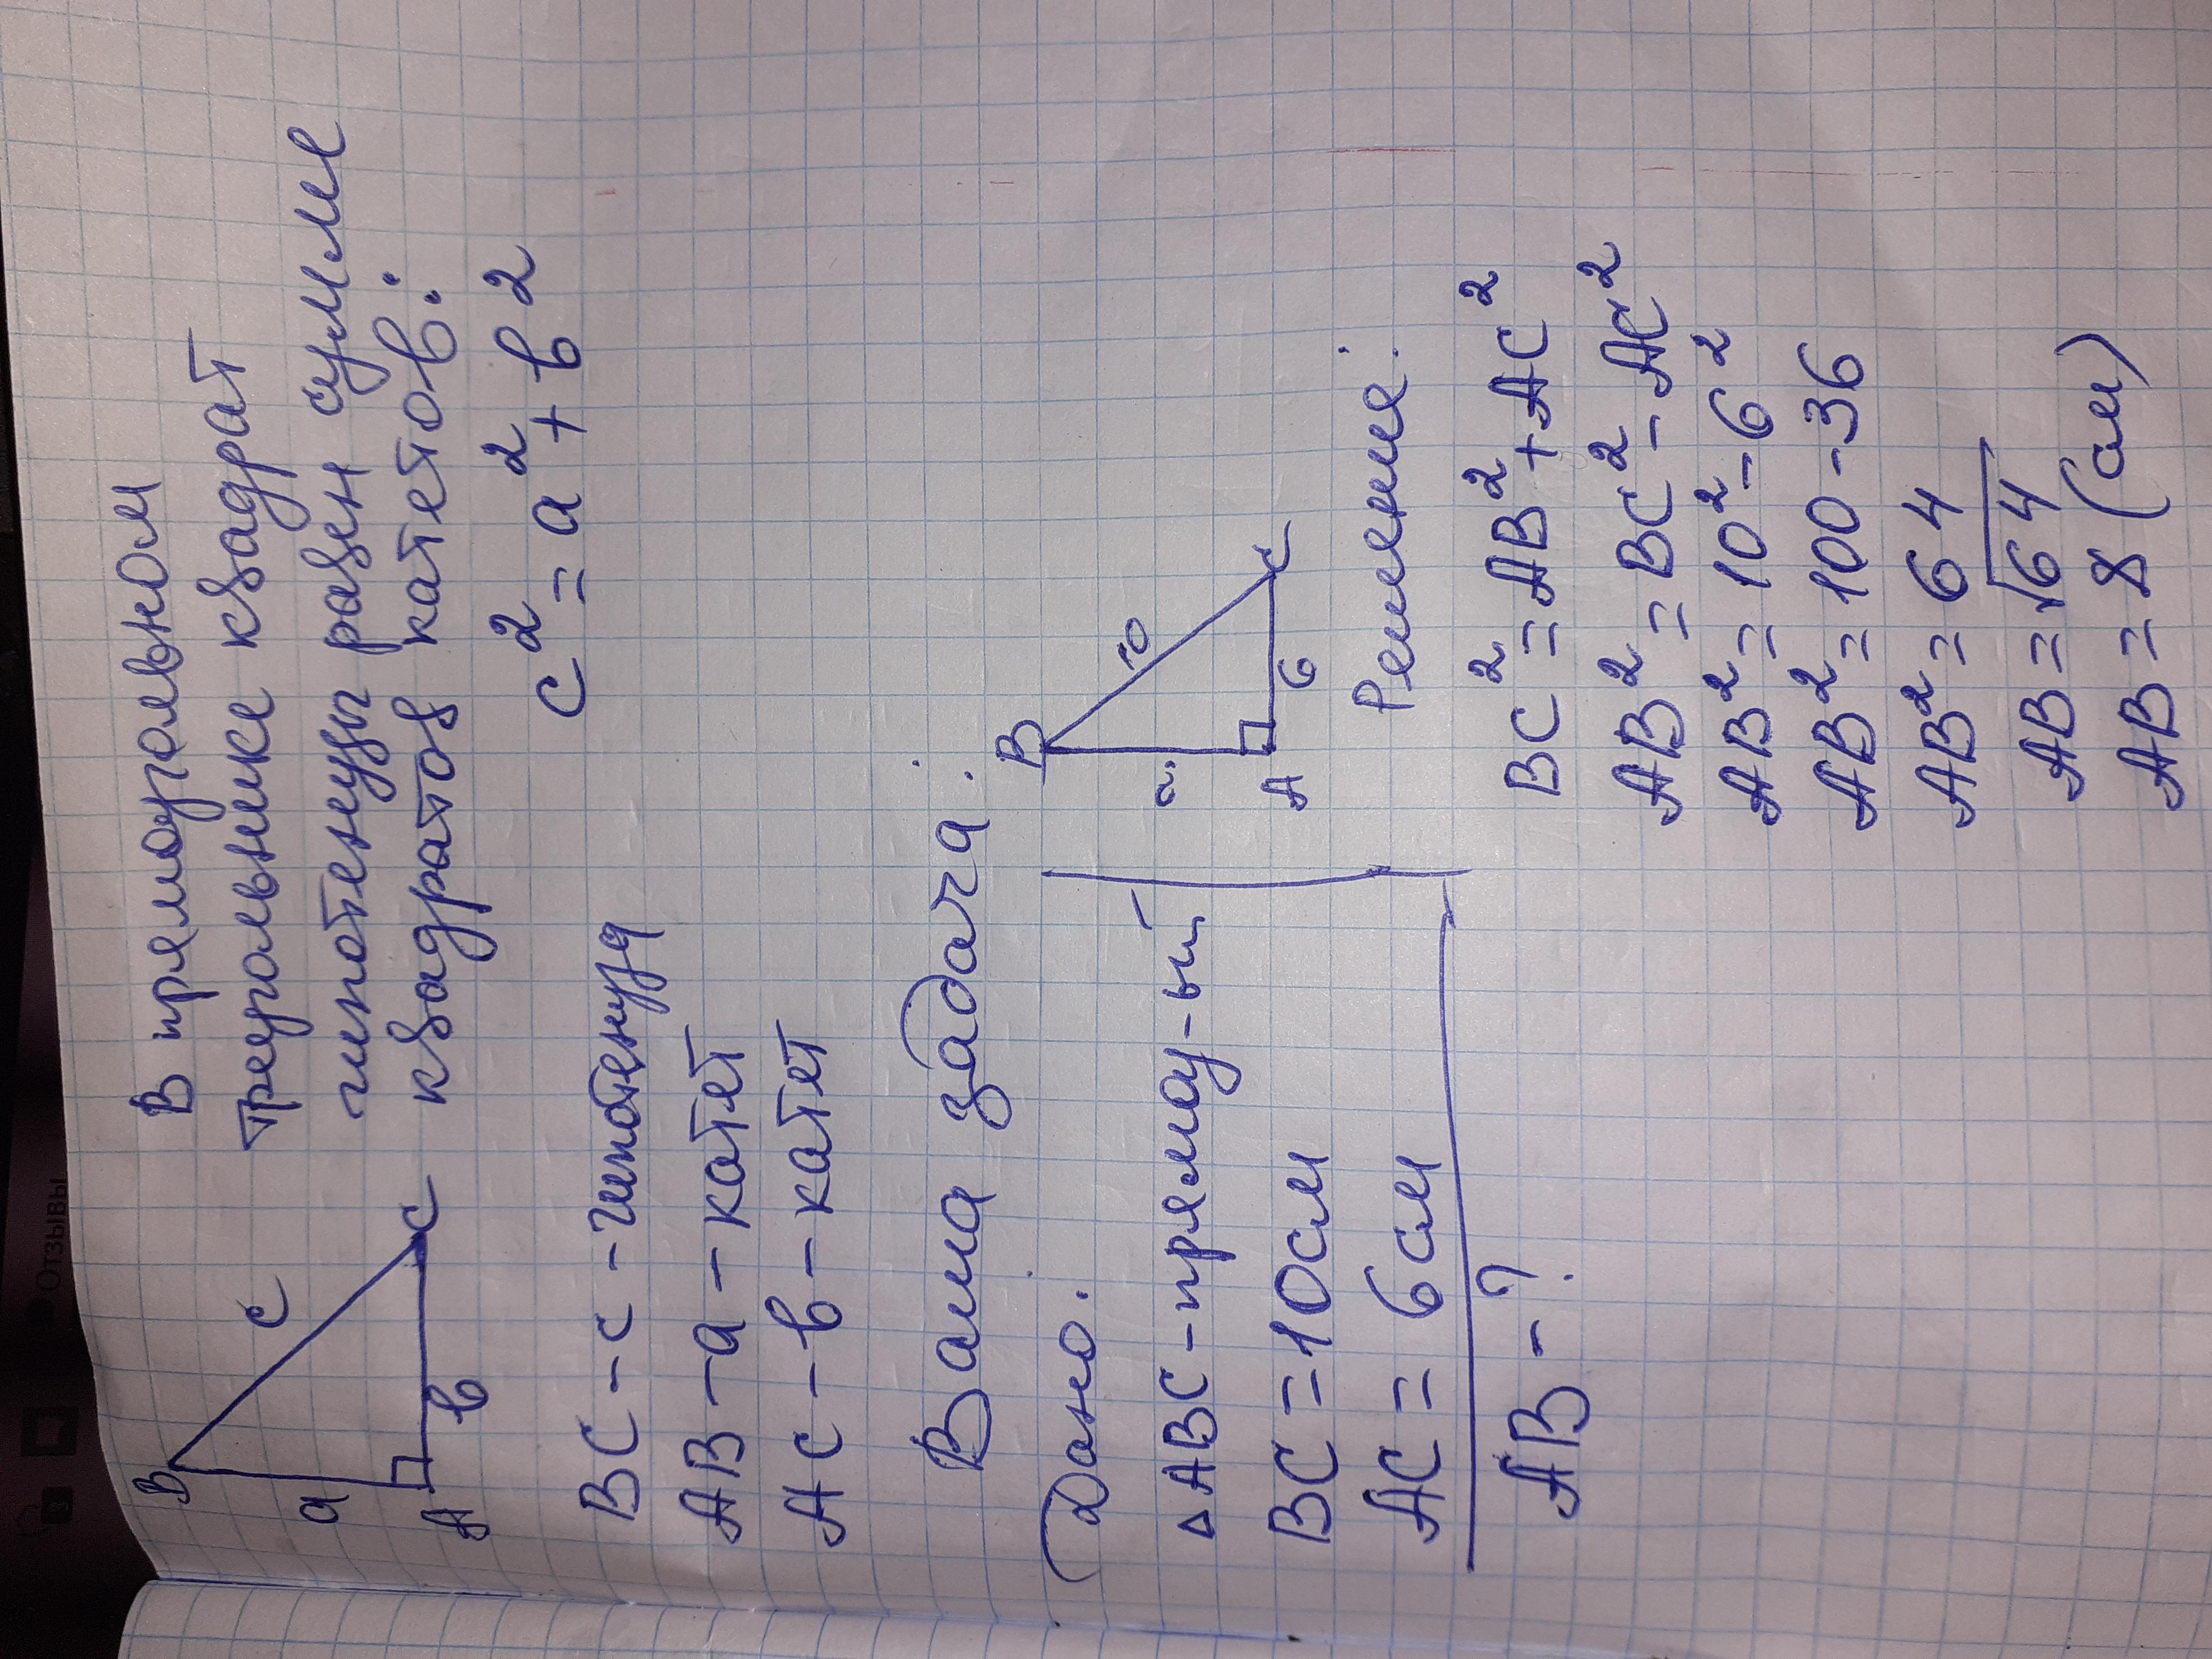 В прямоугольном
треугольнике квадрат
гипотенузы равен сумме
квадратов катетов:
c² = a² + b²
B
c
a
A
b
C
BC - c - гипотенуза
AB - a - катет
AC - b - катет
Ваша задача:
Дано:
△ABC - прямоу-ый
BC = 10 см
AC = 6 см
AB - ?
B
a
10
A
6
C
Решение:
BC² = AB² + AC²
AB² = BC² - AC²
AB² = 10² - 6²
AB² = 100 - 36
AB² = 64
AB = √64
AB = 8 (см)
Отзывы
3